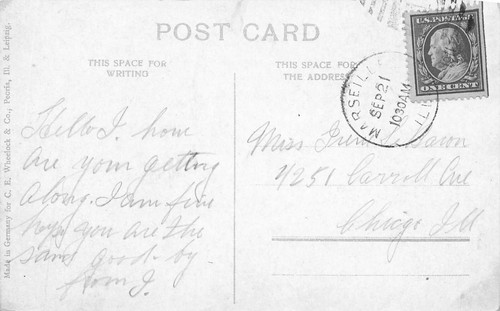 POST CARD
THIS SPACE FOR
WRITING
THIS SPACE FOR
THE ADDRESS
U.S. POSTAGE
ONE CENT
MARSEILLES
SEP 21
1030AM
ILL
Hello I. how
are your getting
along. I am fine
hope you are the
same good-by
from I.
Miss Irene
Carroll Ave
Chicgo Ill
Made in Germany for C. E. Wheelock & Co., Peoria, Ill. & Leipzig.